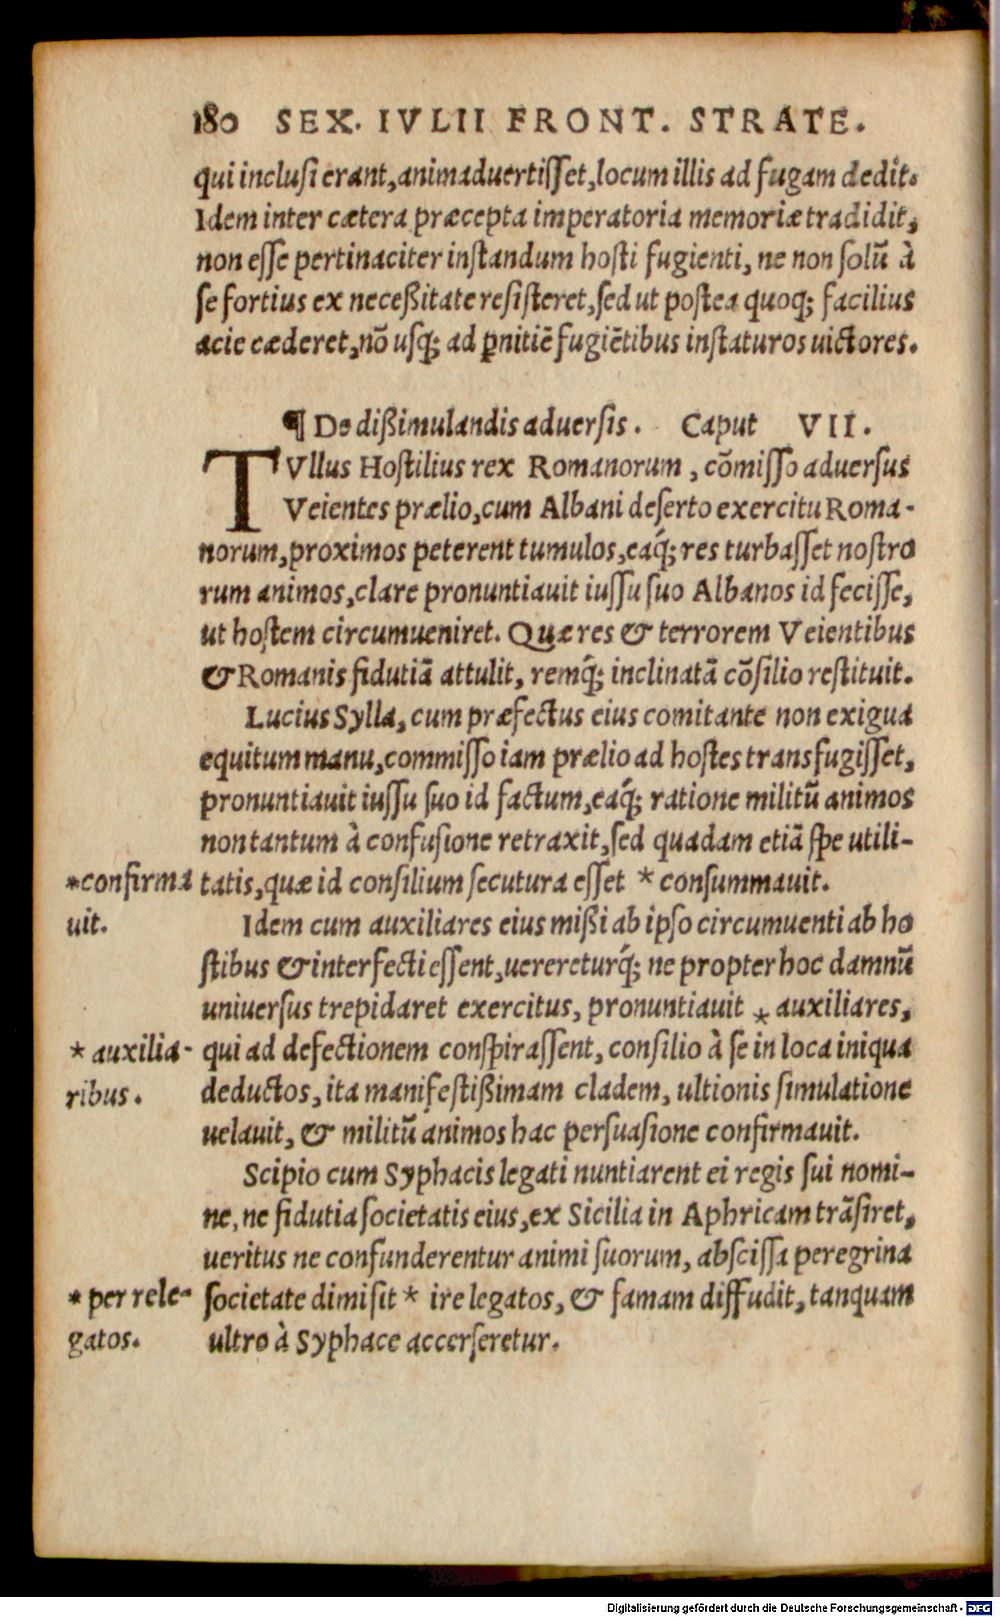 180 SEX. IVLII FRONT. STRATE.
qui inclusi erant, animaduertisset, locum illis ad fugam dedit.
Idem inter cætera præcepta imperatoria memoriæ tradidit,
non esse pertinaciter instandum hosti fugienti, ne non solũ à
se fortius ex neceßitate resisteret, sed ut postea quoq; facilius
acie cæderet, nõ usq; ad ꝑnitiẽ fugiẽtibus instaturos uictores.
¶ De dißimulandis aduersis. Caput VII.
TVllus Hostilius rex Romanorum, cõmisso aduersus
Veientes prælio, cum Albani deserto exercitu Roma-
norum, proximos peterent tumulos, eaq́; res turbasset nostro
rum animos, clare pronuntiauit iussu suo Albanos id fecisse,
ut hostem circumueniret. Quæ res & terrorem Veientibus
& Romanis fidutiã attulit, remq́; inclinatã cõsilio restituit.
Lucius Sylla, cum præfectus eius comitante non exigua
equitum manu, commisso iam prælio ad hostes transfugisset,
pronuntiauit iussu suo id factum, eaq́; ratione militũ animos
non tantum à confusione retraxit, sed quadam etiã spe utili-
*confirma tatis, quæ id consilium secutura esset * consummauit.
uit. Idem cum auxiliares eius mißi ab ipso circumuenti ab ho
stibus & interfecti essent, uerereturq́; ne propter hoc damnũ
uniuersus trepidaret exercitus, pronuntiauit * auxiliares,
* auxilia- qui ad defectionem conspirassent, consilio à se in loca iniqua
ribus. deductos, ita manifestißimam cladem, ultionis simulatione
uelauit, & militũ animos hac persuasione confirmauit.
Scipio cum Syphacis legati nuntiarent ei regis sui nomi-
ne, ne fidutia societatis eius, ex Sicilia in Aphricam trãsiret,
ueritus ne confunderentur animi suorum, abscissa peregrina
* per rele- societate dimisit * ire legatos, & famam diffudit, tanquam
gatos. ultro à Syphace accerseretur.
Digitalisierung gefördert durch die Deutsche Forschungsgemeinschaft - DFG